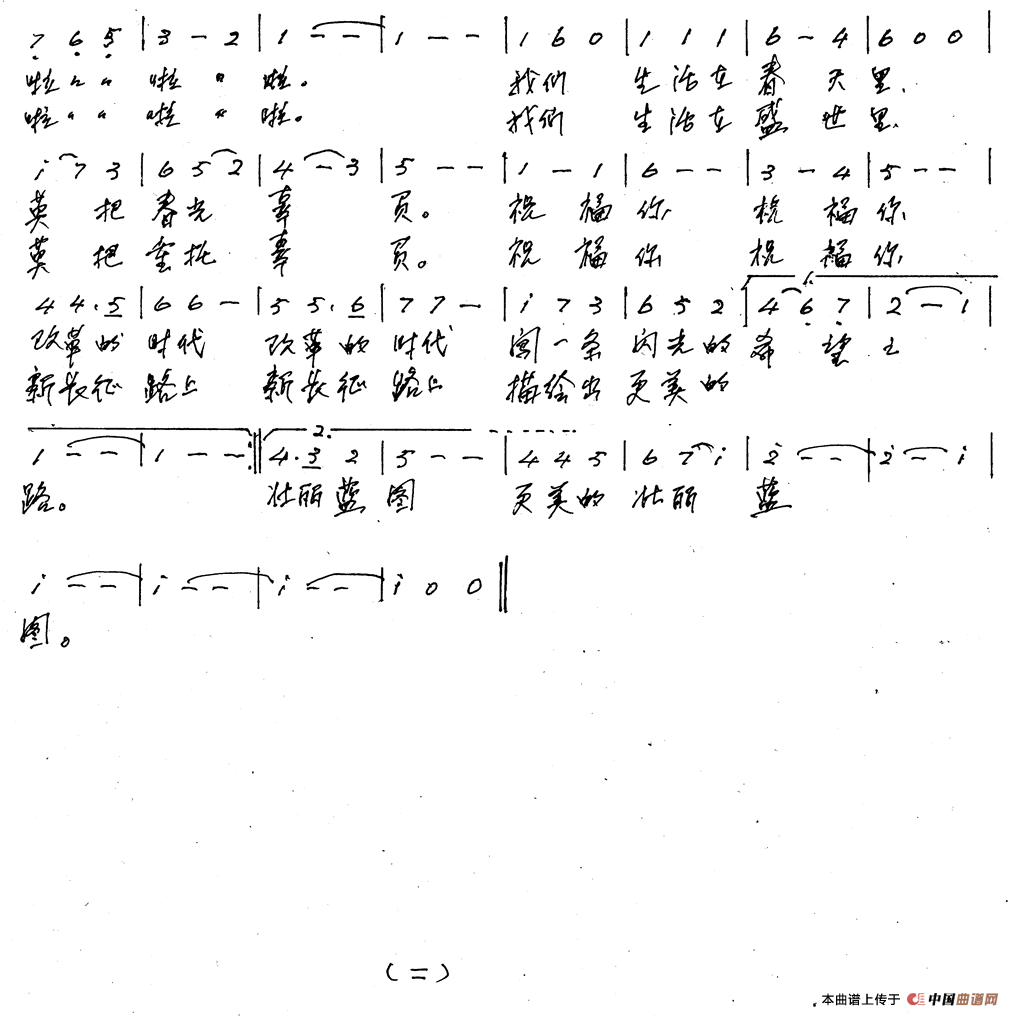 7 6 5 | 3 - 2 | 1 - - | 1 - - | 1 6 0 | 1 1 1 | 6 - 4 | 6 0 0 |
啦〃〃 啦〃 啦。 我们 生活在春天里、
啦〃〃 啦〃 啦。 我们 生活在盛世里、
i 7 3 | 6 5 2 | 4 - 3 | 5 - - | 1 - 1 | 6 - - | 3 - 4 | 5 - - |
莫把春光辜负。 祝福你 祝福你
莫把重托辜负。 祝福你 祝福你
4 4. 5 | 6 6 - | 5 5. 6 | 7 7 - | i 7 3 | 6 5 2 | 1. 4 6 7 | 2 - 1 |
改革的时代 改革的时代 闯一条闪光的希望之
新长征路上 新长征路上 描绘出更美的
1 - - | 1 - - :‖ 2. 4. 3 2 | 5 - - | 4 4 5 | 6 7 i | 2 - - | 2 - i |
路。 壮丽蓝图 更美的壮丽蓝
i - - | i - - | i - - | i 0 0 ‖
图。
(二)
本曲谱上传于 中国曲谱网